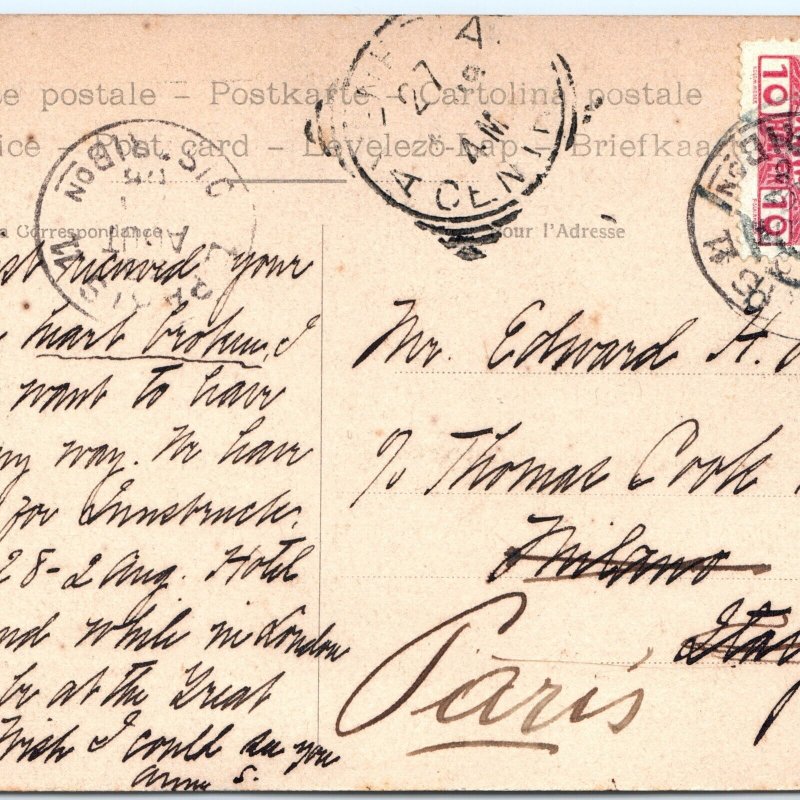 te postale – Postkarte – Cartolina postale
ice – Post card – Levelező-Lap – Briefkaa
Correspondance
our l'Adresse
27
4 AM
A CENT
AOUT
10
10
your
heart broken. I
want to have
ny way. We have
for Innsbruck.
28-2 Aug. Hotel
nd while in London
be at the Great
Wish I could see you
Anna S.
Mr. Edward H.
c/o Thomas Cook
Milano
Italy
Paris